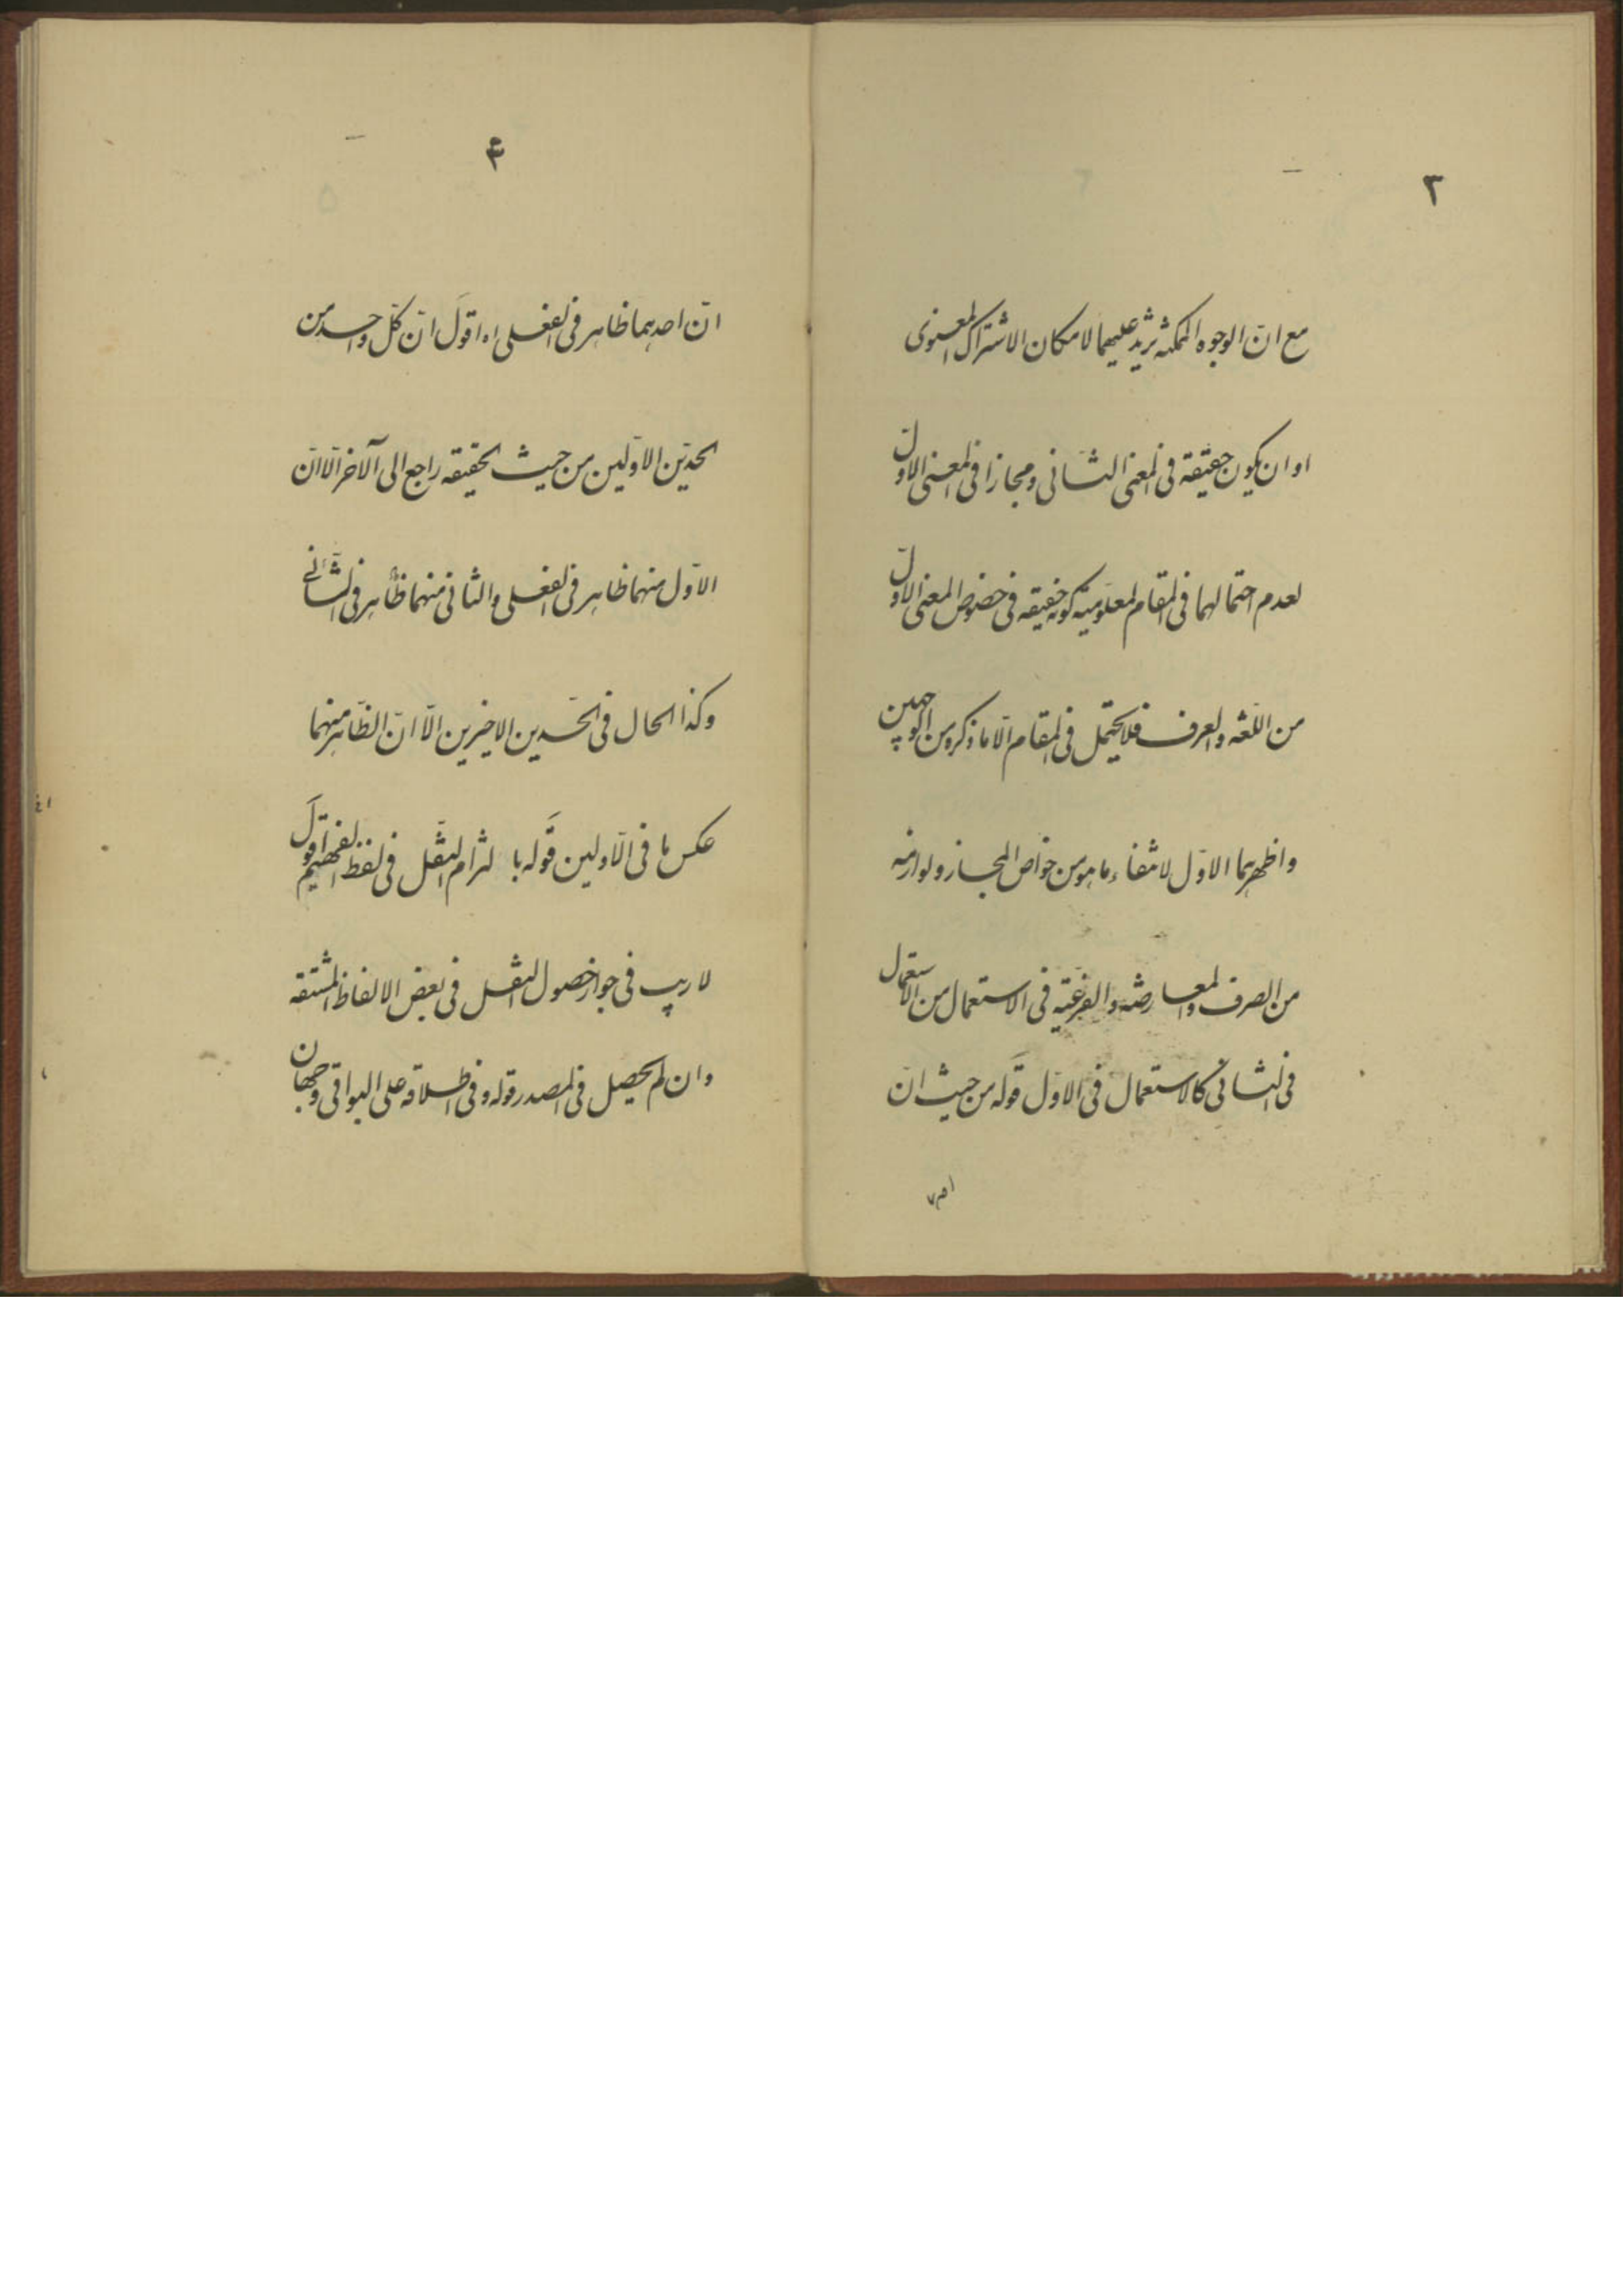 ٣
مع ان الوجوه الممكنة تزيد عليهما لامكان الاشتراك المعنوى
او ان يكون حقيقة فى المعنى الثانى ومجازا فى المعنى الاول
لعدم احتمالهما فى المقام لمعلومية كونه حقيقه فى خصوص المعنى الاول
من اللغة والعرف فلا يحتمل فى المقام الّا ما ذكره من الوجهين
واظهرهما الاوّل لانتفاء ما هو من خواص المجاز ولوازمه
من الصرف والمعارضة والفرعية فى الاستعمال من الاستعمال
فى الثانى كالاستعمال فى الاوّل قوله من حيث انّ
۴
انّ احدهما ظاهر فى الفعلى اه اقول انّ كلّ واحد من
الحدّين الاوّلين من حيث الحقيقه راجع الى الآخر الّا انّ
الاوّل منهما ظاهر فى الفعلى والثانى منهما ظاهر فى الشأنى
وكذا الحال فى الحدين الاخيرين الّا انّ الظاهر منهما
عكس ما فى الاولين قوله با لتزام النقل فى لفظ الفقيه اقول
لا ريب فى جواز حصول النقل فى بعض الالفاظ المشتقه
وان لم يحصل فى المصدر قوله وفى اطلاقه على البواقى وجهان